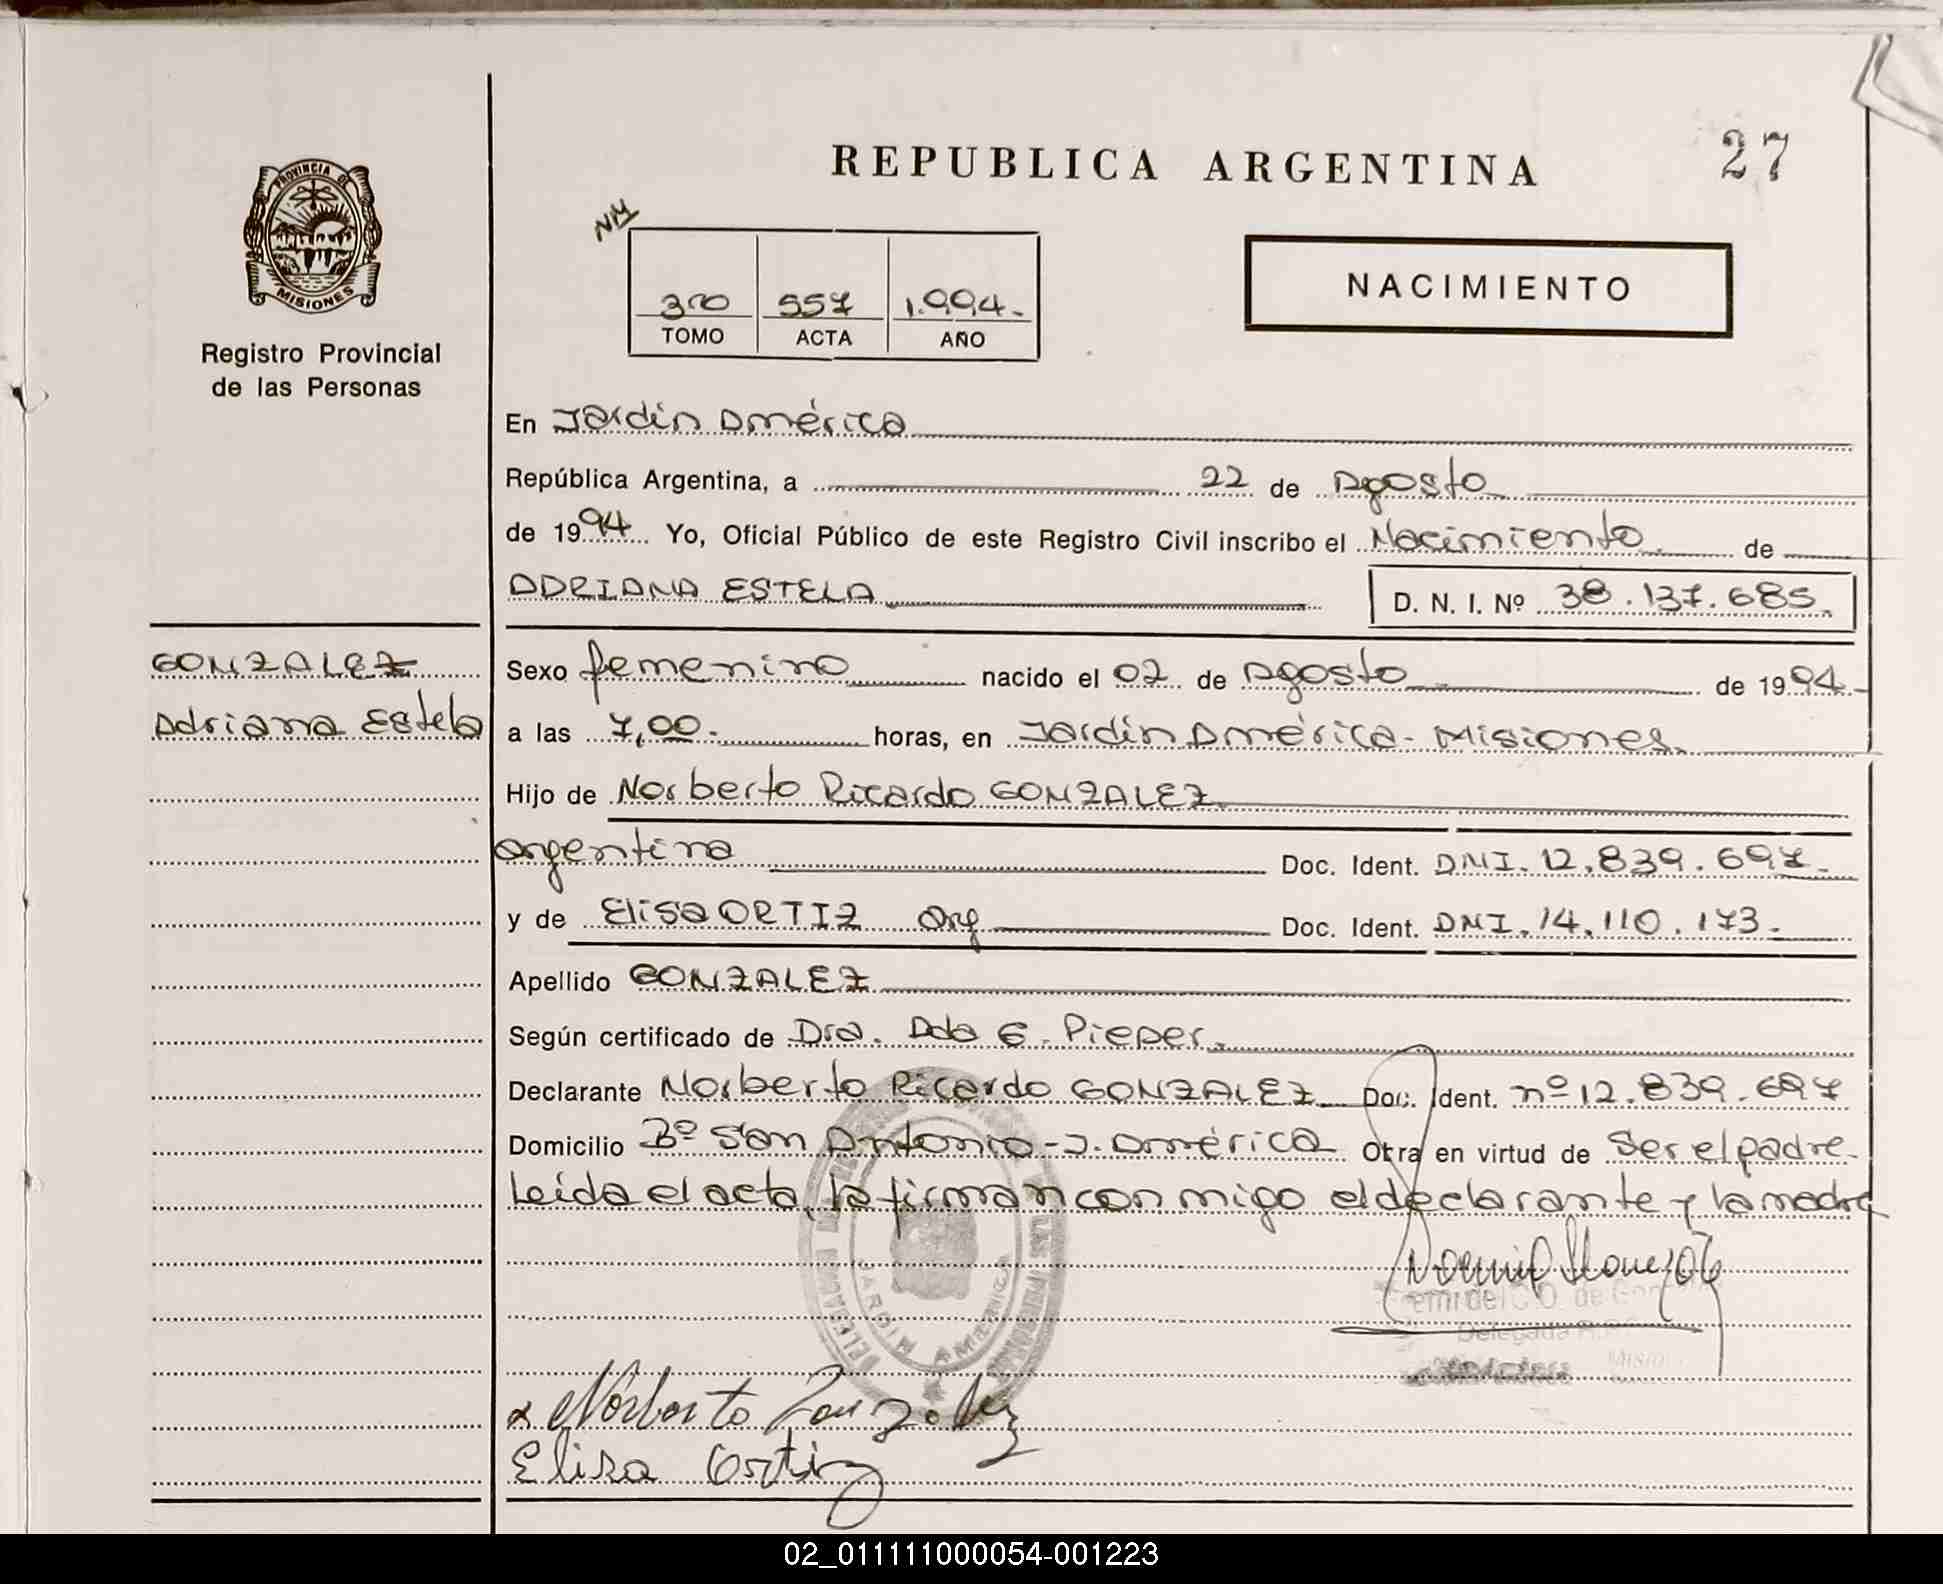 REPUBLICA ARGENTINA
27
PROVINCIA DE
MISIONES
Registro Provincial
de las Personas
NM
557 1.994.-
TOMO ACTA AÑO
NACIMIENTO
En Jardín América
República Argentina, a 22 de Agosto
de 1994 Yo, Oficial Público de este Registro Civil inscribo el Nacimiento de
ADRIANA ESTELA
D. N. I. Nº 38.137.685.
GONZALEZ
Adriana Estela
Sexo femenino nacido el 02 de Agosto de 1994.-
a las 7,00.- horas, en Jardín América - Misiones.
Hijo de Norberto Ricardo GONZALEZ
argentina Doc. Ident. DNI. 12.839.697.-
y de Elisa ORTIZ arg Doc. Ident. DNI. 14.110.173.-
Apellido GONZALEZ
Según certificado de Dra. Ada G. Pieper.
Declarante Norberto Ricardo GONZALEZ Doc. Ident. nº 12.839.697
Domicilio Bº San Antonio - J. América Otra en virtud de Ser el padre.
Leída el acta, la firman con migo el declarante y la madre
JARDIN AMERICA
LAS PERSONAS
Delegada
Norberto Gonzalez
Elisa Ortiz
02_011111000054-001223